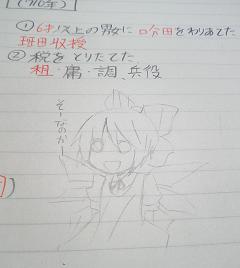 (710年)
① 6才以上の男女に口分田をわりあてた
班田収授
② 税をとりたてた
租・庸・調、兵役
そーなのかー